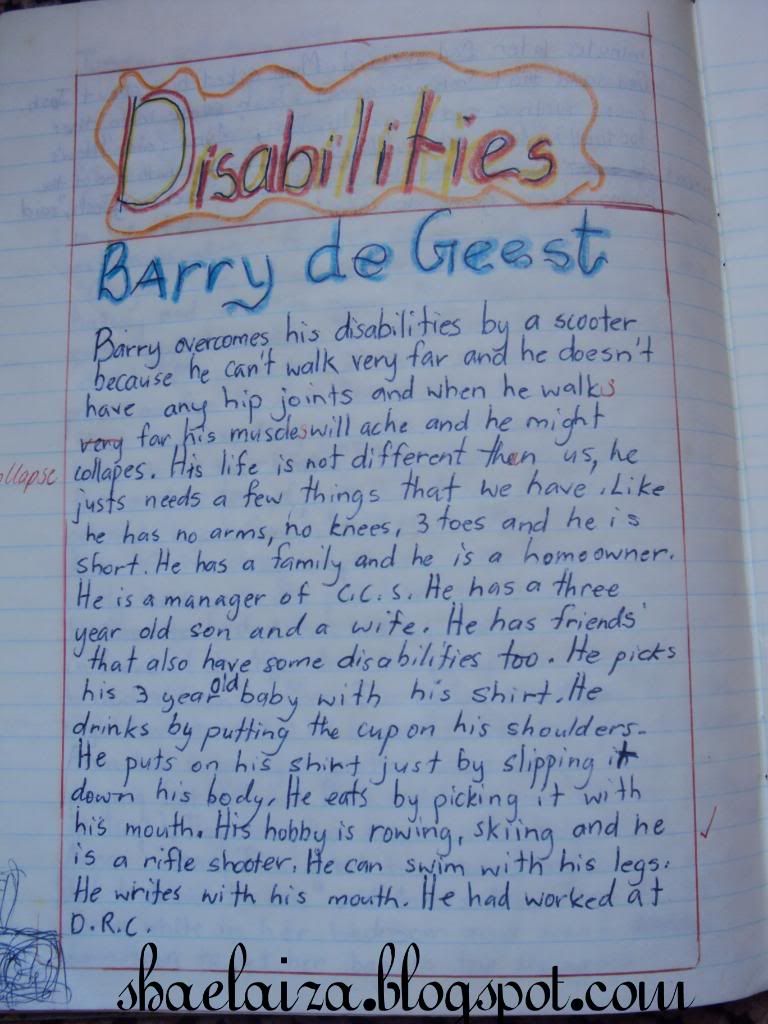 Disabilities
Barry de Geest
Barry overcomes his disabilities by a scooter
because he can't walk very far and he doesn't
have any hip joints and when he walks
very far his muscles will ache and he might
collapes. His life is not different then us, he
justs needs a few things that we have. Like
he has no arms, no knees, 3 toes and he is
short. He has a family and he is a homeowner.
He is a manager of C.C.S. He has a three
year old son and a wife. He has friends
that also have some disabilities too. He picks
his 3 year old baby with his shirt. He
drinks by putting the cup on his shoulders.
He puts on his shirt just by slipping it
down his body. He eats by picking it with
his mouth. His hobby is rowing, skiing and he
is a rifle shooter. He can swim with his legs.
He writes with his mouth. He had worked at
D.R.C.
ollapse
shaelaiza.blogspot.com